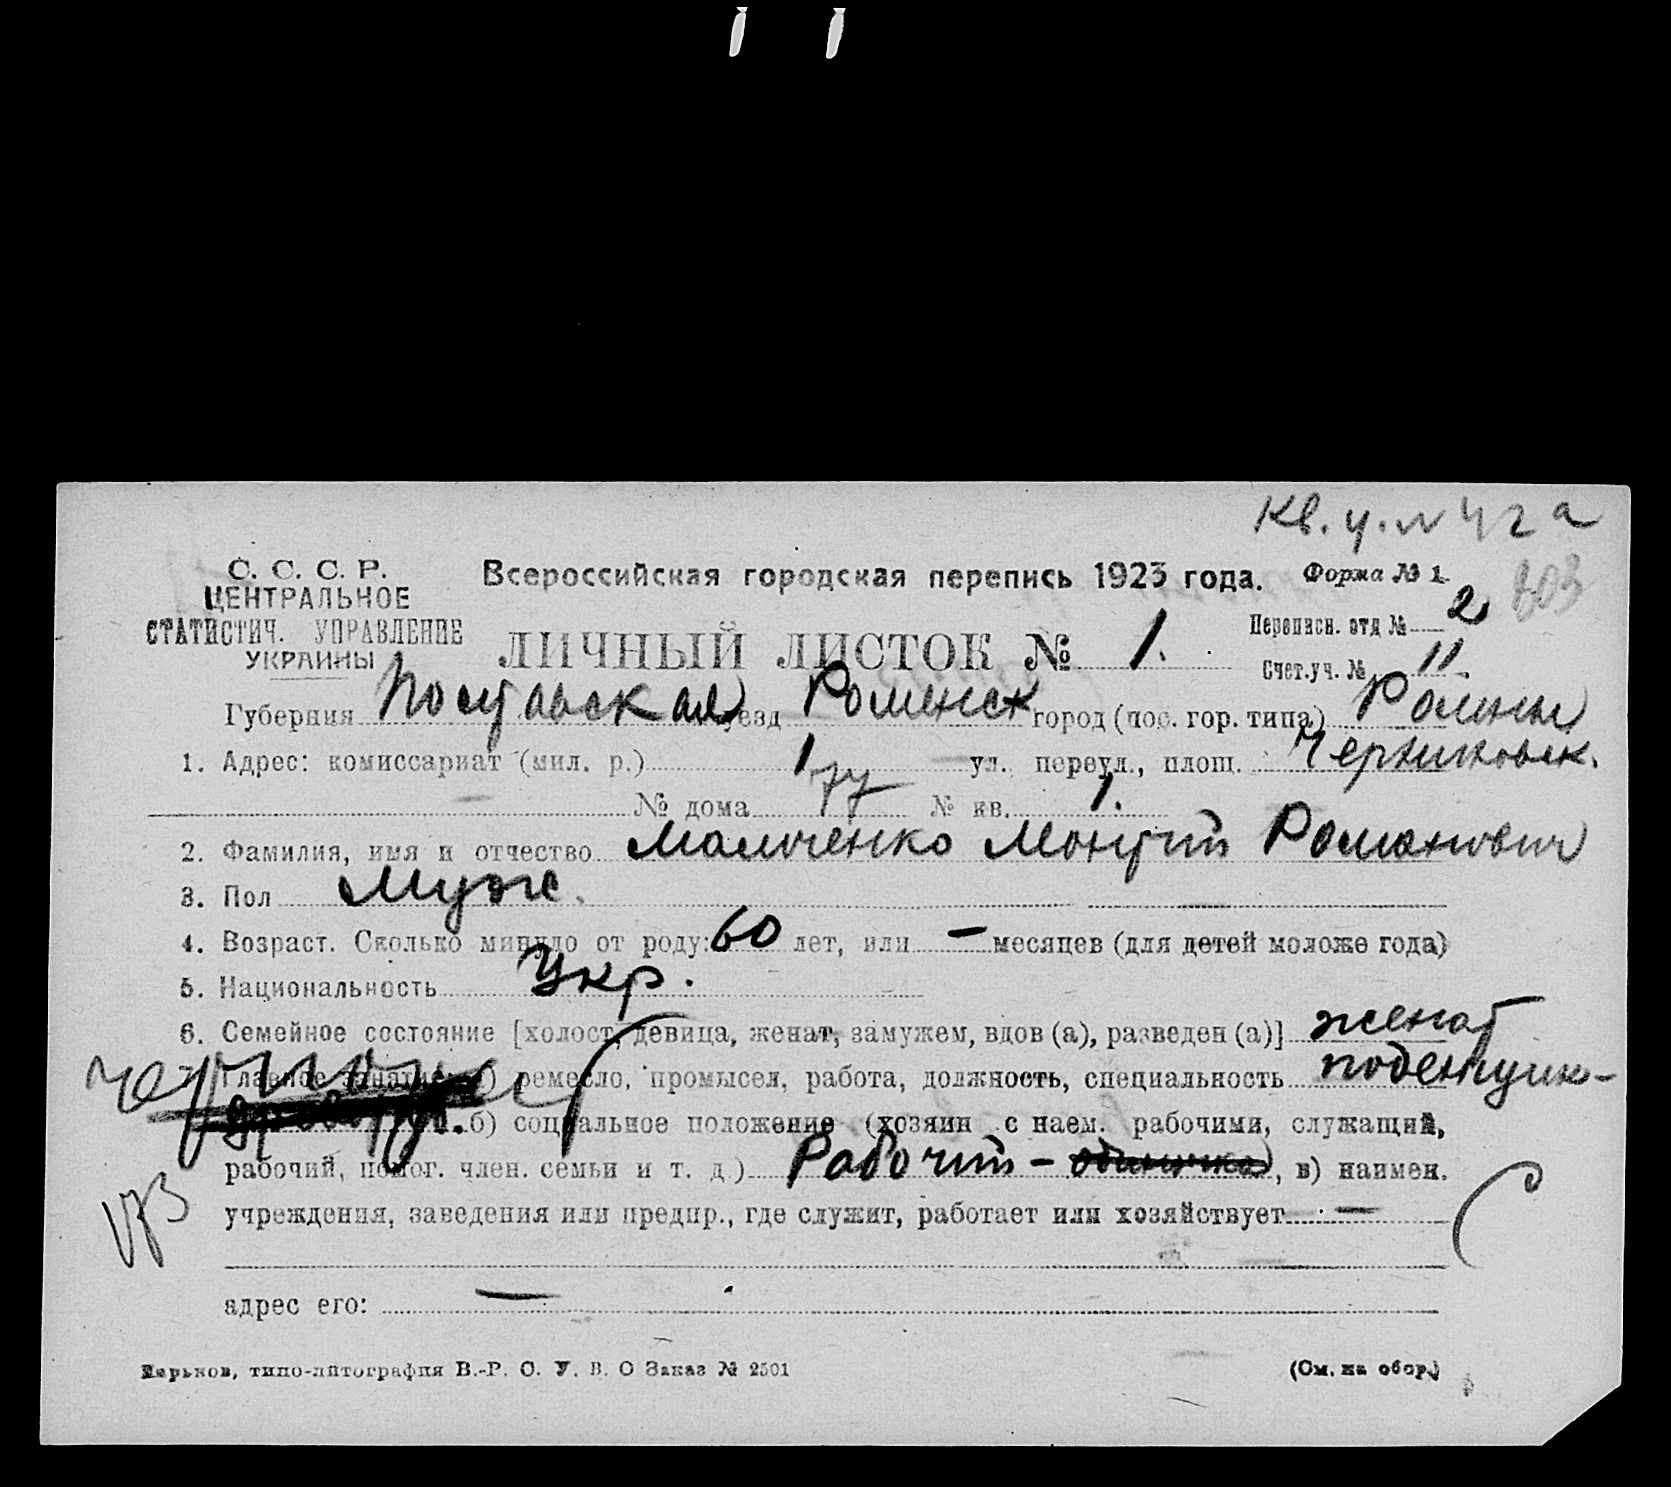 Кв. у. № 42а
С. С. С. Р.
ЦЕНТРАЛЬНОЕ
СТАТИСТИЧ. УПРАВЛЕНИЕ
УКРАИНЫ
Всероссийская городская перепись 1923 года.
Форма № 1.
803
ЛИЧНЫЙ ЛИСТОК № 1.
Переписн. отд № 2
Счет.уч. № 11.
Губерния Полтавская уезд Роменск город (пос. гор. типа) Ромны
1. Адрес: комиссариат (мил. р.) 1 ул., переул., площ. Черниковск.
№ дома 77 № кв. 1.
2. Фамилия, имя и отчество Романович
3. Пол Муж.
4. Возраст. Сколько минуло от роду: 60 лет, или — месяцев (для детей моложе года)
5. Национальность Укр.
6. Семейное состояние [холост, девица, женат, замужем, вдов (а), разведен (а)] женат
7. Главное занятие: а) ремесло, промысел, работа, должность, специальность поденщик-
б) социальное положение (хозяин с наем. рабочими, служащий,
рабочий, помог. член. семьи и т. д.) Рабочий - одиночка, в) наимен.
учреждения, заведения или предпр., где служит, работает или хозяйствует —
адрес его: —
Харьков, типо-литография В.-Р. С. У. В. О Заказ № 2501
(См. на обор.)